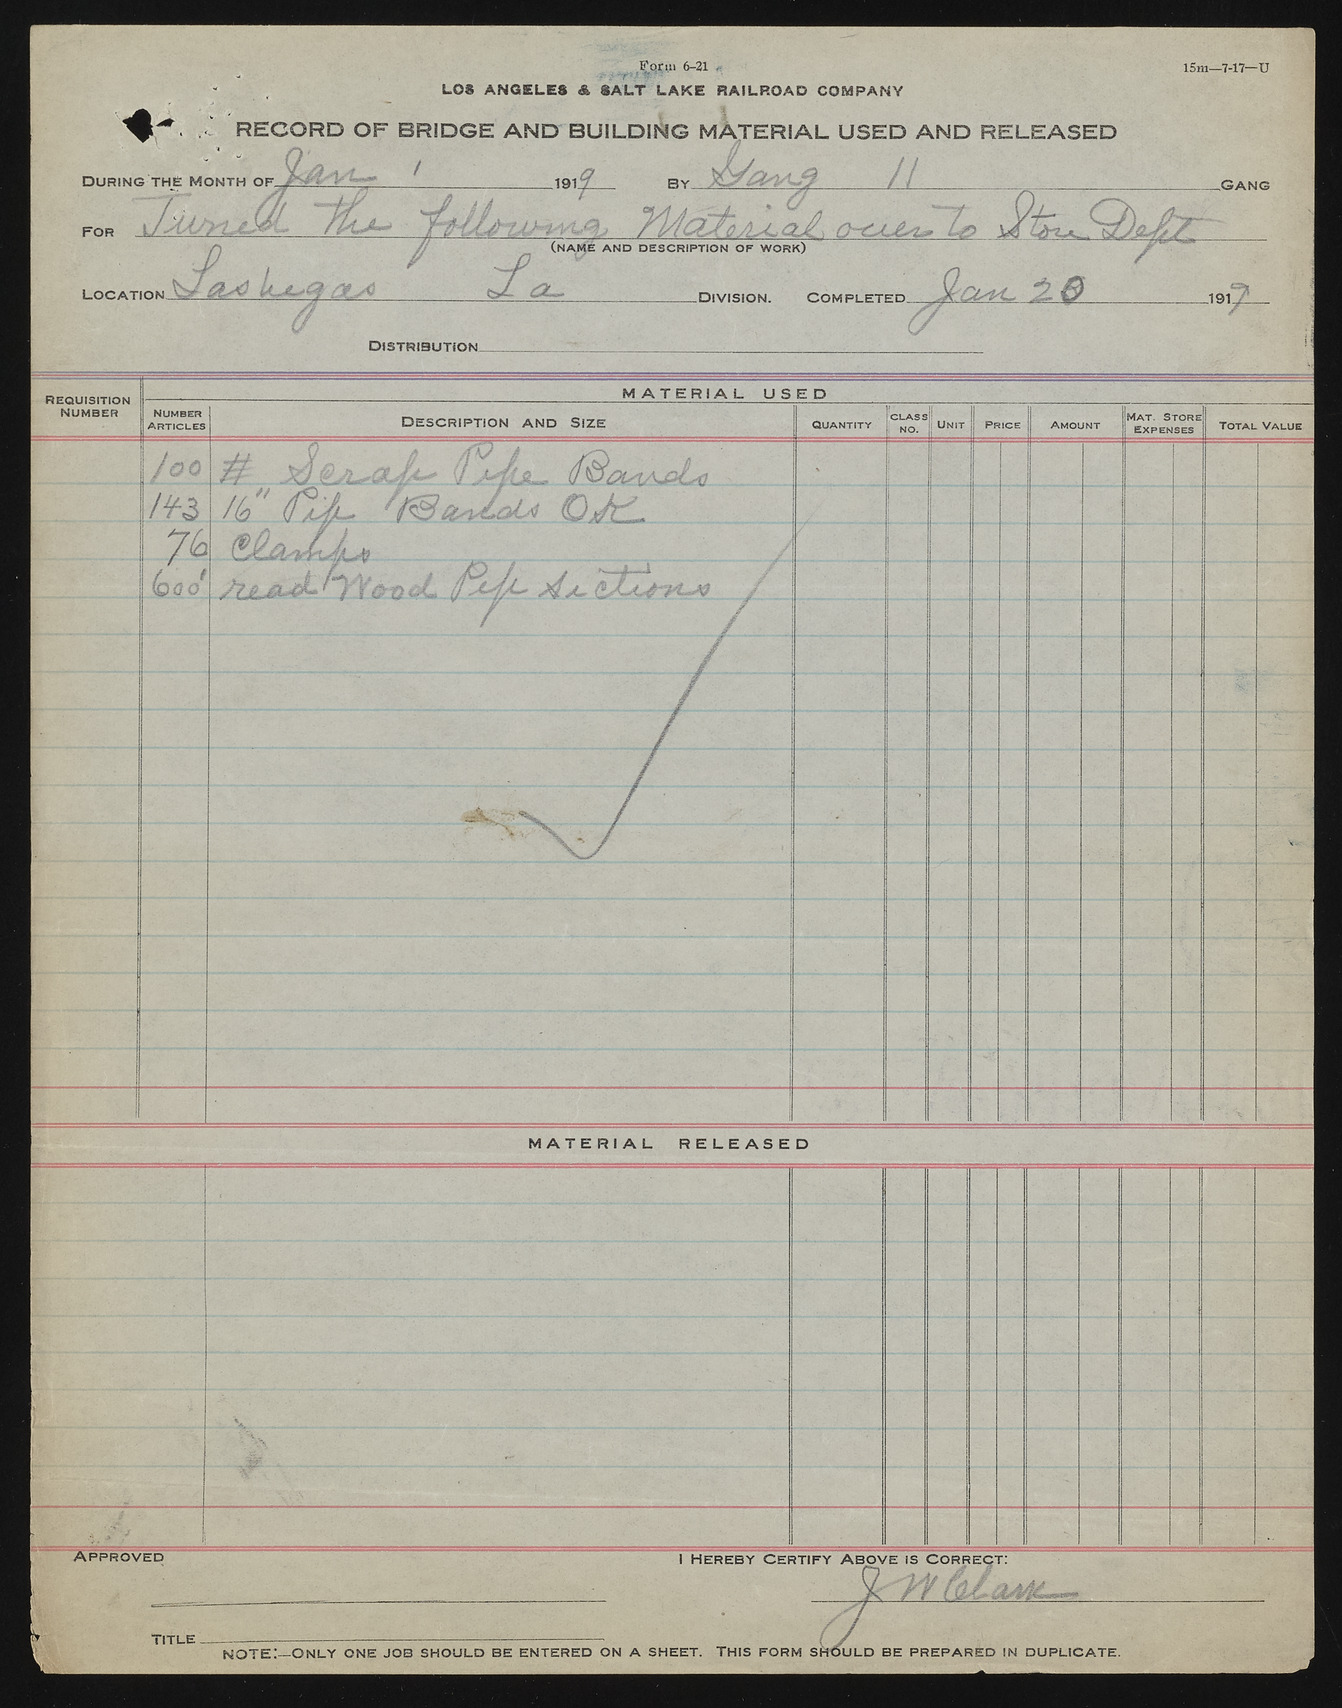 Form 6-21
15m—7-17—U
LOS ANGELES & SALT LAKE RAILROAD COMPANY
RECORD OF BRIDGE AND BUILDING MATERIAL USED AND RELEASED
DURING THE MONTH OF Jan 1 1919 BY Gang 11 GANG
FOR Turned the following Material over to Store Dept
(NAME AND DESCRIPTION OF WORK)
LOCATION Las Vegas La DIVISION. COMPLETED Jan 20 1919
DISTRIBUTION
MATERIAL USED
REQUISITION NUMBER
NUMBER ARTICLES
DESCRIPTION AND SIZE
QUANTITY
CLASS NO.
UNIT
PRICE
AMOUNT
MAT. STORE EXPENSES
TOTAL VALUE
100 # Scrap Pipe Bands
143 16" Pip Bands OK
76 Clamps
600' read Wood Pip sections
MATERIAL RELEASED
APPROVED
I HEREBY CERTIFY ABOVE IS CORRECT:
J W Clark
TITLE
NOTE:—ONLY ONE JOB SHOULD BE ENTERED ON A SHEET. THIS FORM SHOULD BE PREPARED IN DUPLICATE.